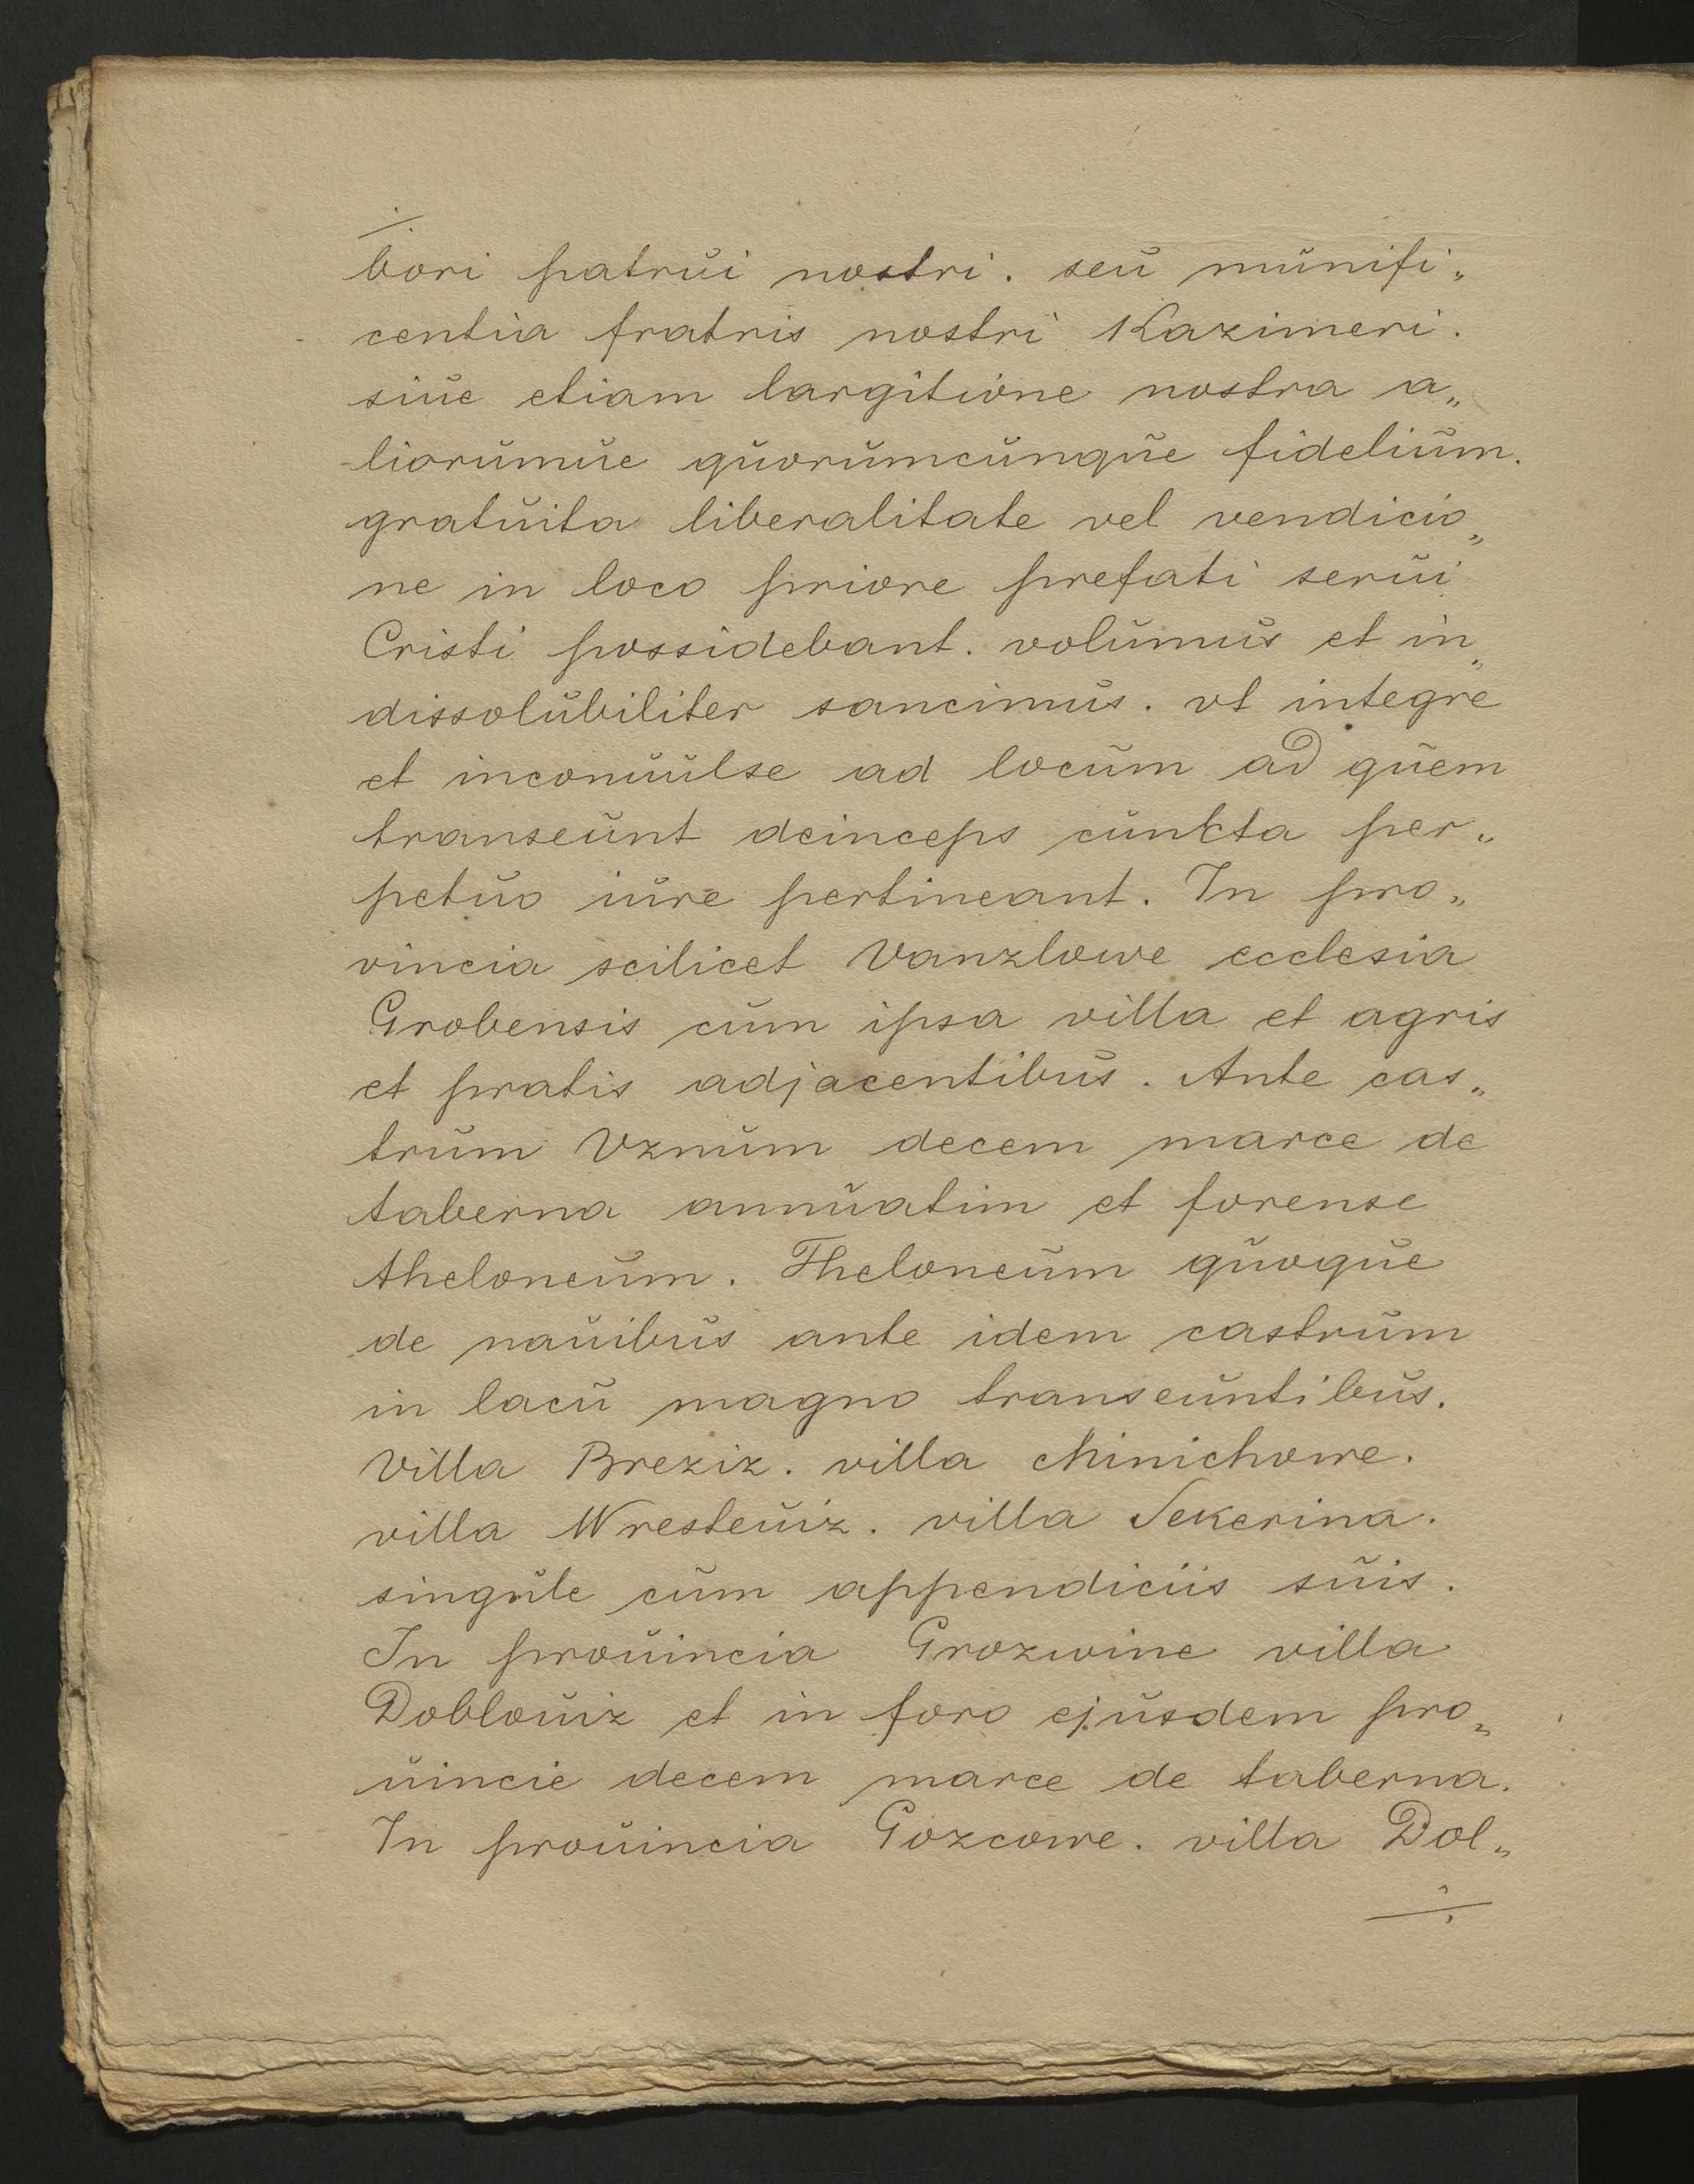 ./.
bori patrŭi nostri. seŭ mŭnifi„
centia fratris nostri Kazimeri.
siŭe etiam largitione nostra a„
liorŭmŭe qŭorŭmcŭnqŭe fideliŭm.
gratŭita liberalitate vel vendicio„
ne in loco priore prefati serŭi
Cristi possidebant. volŭmŭs et in„
dissolŭbiliter sancimŭs. vt integre
et inconŭŭlse ad locŭm ad qŭem
transeŭnt deinceps cŭnkta per„
petŭo iŭre pertineant. In pro„
vincia scilicet Vanzlowe ecclesia
Grobensis cŭm ipsa villa et agris
et pratis adjacentibŭs. Ante cas„
trŭm Vznŭm decem marce de
taberna annŭatim et forense
theloneŭm. Theloneŭm qŭoqŭe
de naŭibŭs ante idem castrŭm
in lacŭ magno transeŭntibŭs.
Villa Breziz. villa Minichowe.
villa Wresteŭiz. villa Sekerina.
singŭle cŭm appendiciis sŭis.
In proŭincia Grozwine villa
Dobloŭiz et in foro ejŭsdem pro„
ŭincie decem marce de taberna.
In proŭincia Gozcowe. villa Dol„
./.